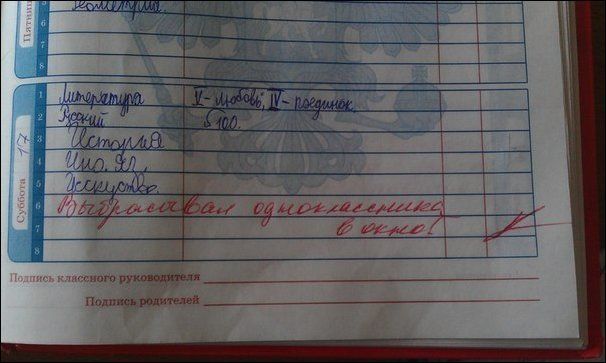 Пятница
5
6
7
8
Геометрия.
Суббота 17
1 Литература V-любовь; IV-поединок.
2 Русский §100.
3 История
4 Ино. яз.
5 Исскуство.
6 Выбрасывал одноклассника
7 в окно!
8
Подпись классного руководителя
Подпись родителей